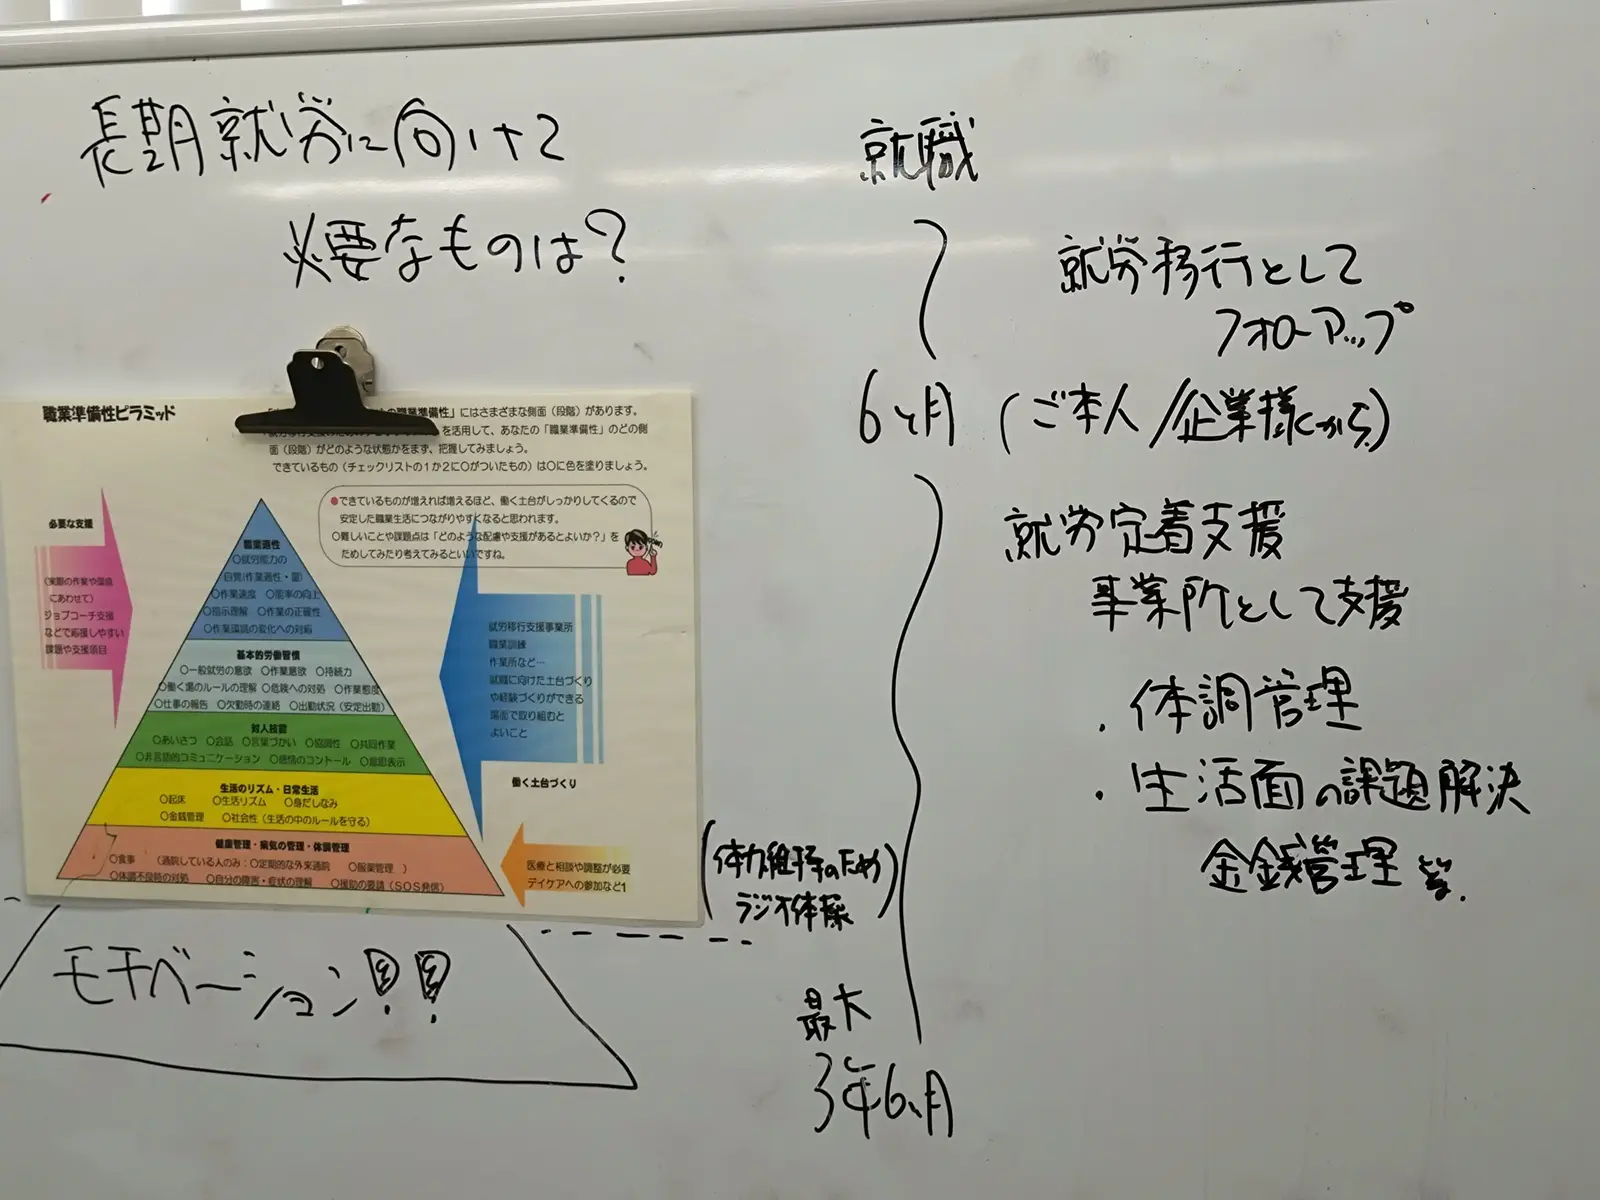 長期就労に向けて
必要なものは?
職業準備性ピラミッド
の職業準備性」にはさまざまな側面(段階)があります。
を活用して、あなたの「職業準備性」のどの側
面(段階)がどのような状態かをまず、把握してみましょう。
できているもの(チェックリストの1か2に○がついたもの)は○に色を塗りましょう。
●できているものが増えれば増えるほど、働く土台がしっかりしてくるので
安定した職業生活につながりやすくなると思われます。
○難しいことや課題点は「どのような配慮や支援があるとよいか?」を
ためしてみたり考えてみるといいですね。
必要な支援
(実際の作業や環境
にあわせて)
ジョブコーチ支援
などで応援しやすい
課題や支援項目
職業適性
○就労能力の
自覚(作業適性・量)
○作業速度 ○能率の向上
○指示理解 ○作業の正確性
○作業環境の変化への対応
基本的労働習慣
○一般就労の意欲 ○作業意欲 ○持続力
○働く場のルールの理解 ○危険への対処 ○作業態度
○仕事の報告 ○欠勤時の連絡 ○出勤状況(安定出勤)
対人技能
○あいさつ ○会話 ○言葉づかい ○協調性 ○共同作業
○非言語的コミュニケーション ○感情のコントール ○意思表示
生活のリズム・日常生活
○起床 ○生活リズム ○身だしなみ
○金銭管理 ○社会性(生活の中のルールを守る)
健康管理・病気の管理・体調管理
○食事 (通院している人のみ:○定期的な外来通院 ○服薬管理 )
○体調不良時の対処 ○自分の障害・症状の理解 ○援助の要請(SOS発信)
就労移行支援事業所
職業訓練
作業所など…
就職に向けた土台づくり
や経験づくりができる
場面で取り組むと
よいこと
働く土台づくり
医療と相談や調整が必要
デイケアへの参加など1
(体力維持のため
ラジオ体操)
モチベーション!!
就職
就労移行として
フォローアップ
6ヶ月 (ご本人/企業様から)
就労定着支援
事業所として支援
・体調管理
・生活面の課題解決
金銭管理 等.
最大
3年6ヶ月